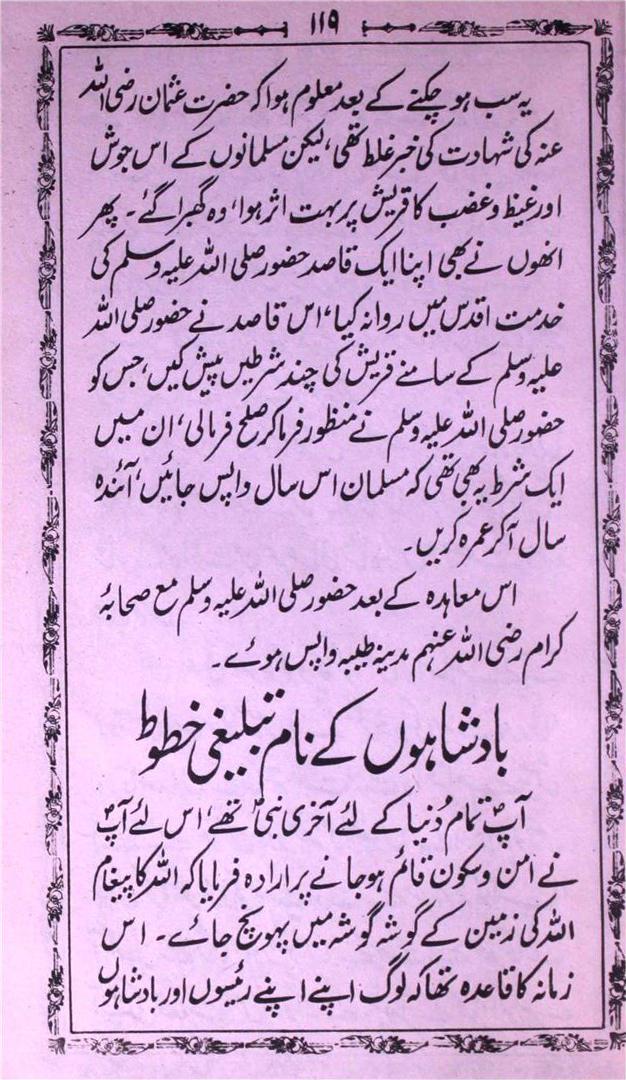 ۱۱۹
یہ سب ہو چکنے کے بعد معلوم ہوا کہ حضرت عثمان رضی اللہ
عنہ کی شہادت کی خبر غلط تھی، لیکن مسلمانوں کے اس جوش
اور غیظ و غضب کا قریش پر بہت اثر ہوا، وہ گھبرا گئے۔ پھر
انھوں نے بھی اپنا ایک قاصد حضور صلی اللہ علیہ وسلم کی
خدمت اقدس میں روانہ کیا، اس قاصد نے حضور صلی اللہ
علیہ وسلم کے سامنے قریش کی چند شرطیں پیش کیں، جس کو
حضور صلی اللہ علیہ وسلم نے منظور فرما کر صلح فرمالی، ان میں
ایک شرط یہ بھی تھی کہ مسلمان اس سال واپس جائیں، آئندہ
سال آکر عمرہ کریں۔
اس معاہدہ کے بعد حضور صلی اللہ علیہ وسلم مع صحابۂ
کرام رضی اللہ عنہم مدینہ طیبہ واپس ہوئے۔
بادشاہوں کے نام تبلیغی خطوط
آپؐ تمام دُنیا کے لئے آخری نبیؐ تھے، اس لئے آپؐ
نے امن و سکون قائم ہوجانے پر ارادہ فرمایا کہ اللہ کا پیغام
اللہ کی زمین کے گوشہ گوشہ میں پہونچ جائے۔ اس
زمانہ کا قاعدہ تھا کہ لوگ اپنے اپنے رئیسوں اور بادشاہوں